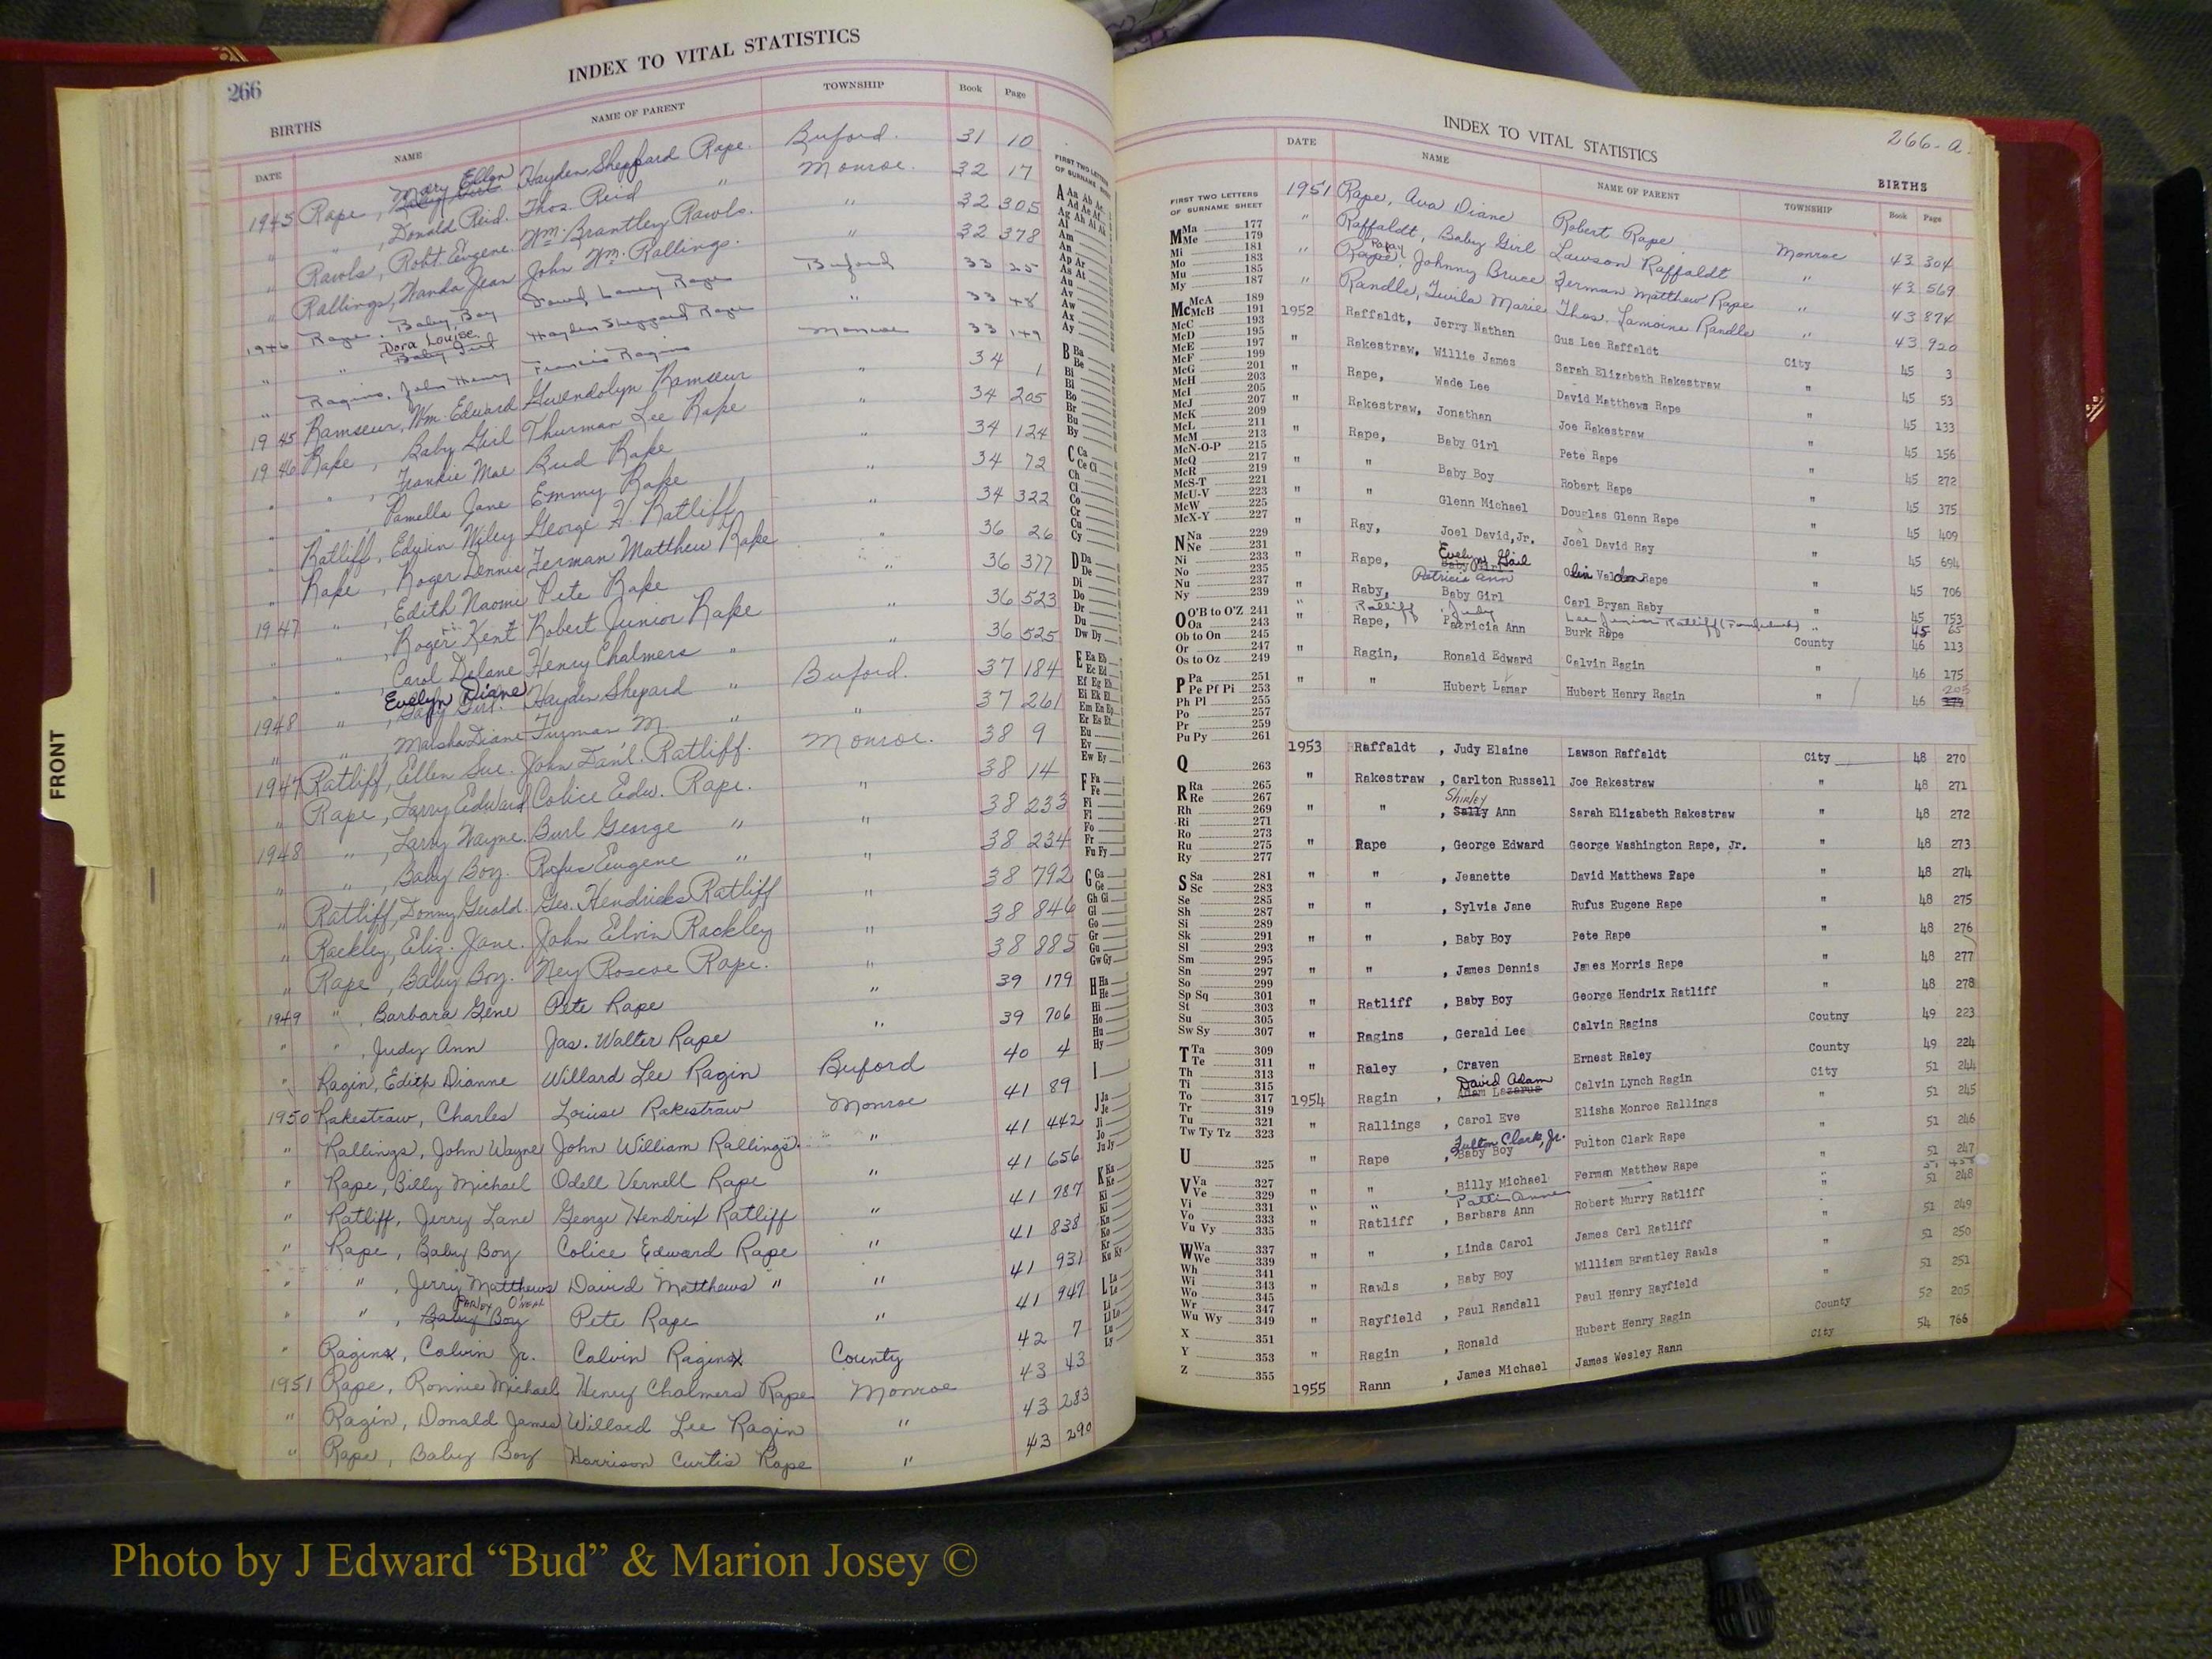 266
INDEX TO VITAL STATISTICS
BIRTHS
DATE NAME NAME OF PARENT TOWNSHIP Book Page
1945 Rape, Mary Ellen Baby Girl Hayden Sheppard Rape. Buford. 31 10
" " , Donald Reid. Thos. Reid " Monroe. 32 17
" Rawls, Robt. Eugene. Wm. Brantley Rawls. " 32 305
" Rallings, Wanda Jean John Wm. Rallings. " 32 378
1946 Rape Baby Boy Rape Buford 33 25
" " Dora Louise Baby Girl Hayden Sheppard Rape " 33 48
" Ragins, John Henry Francis Ragins Monroe 33 149
1945 Ramseur, Wm. Edward Gwendolyn Ramseur " 34 1
1946 Rape, Baby Girl Thurman Lee Rape " 34 205
" " , Frankie Mae Bud Rape " 34 124
" " , Pamella Jane Emmy Rape " 34 72
" Ratliff, Edwin Wiley George H. Ratliff " 34 322
" Rape, Roger Dennis Ferman Matthew Rape " 36 26
1947 " , Edith Naomi Pete Rape " 36 377
" " , Roger Kent Robert Junior Rape 36 523
" " , Carol Delane Henry Chalmers " " 36 525
1948 " , Evelyn Diane Baby Girl. Hayden Shepard " Buford. 37 184
" " , Marsha Diane Furman M. " " 37 261
1947 Ratliff, Ellen Sue. John Dan'l. Ratliff. Monroe. 38 9
" Rape, Larry Edward Colice Edw. Rape. " 38 14
1948 " , Larry Wayne. Burl George " " 38 233
" " , Baby Boy. Rufus Eugene " " 38 234
" Ratliff, Donny Gerald. Geo. Hendricks Ratliff " 38 792
" Rackley, Eliz. Jane. John Elvin Rackley " 38 846
" Rape, Baby Boy. Ney Roscoe Rape. " 38 885
1949 " , Barbara Gene Pete Rape " 39 179
" " , Judy Ann Jas. Walter Rape " 39 706
" Ragin, Edith Dianne Willard Lee Ragin Buford 40 4
1950 Rakestraw, Charles Louise Rakestraw Monroe 41 89
" Rallings, John Wayne John William Rallings. " 41 442
" Rape, Billy Michael Odell Vernell Rape " 41 656
" Ratliff, Jerry Lane George Hendrix Ratliff " 41 787
" Rape, Baby Boy Colice Edward Rape " 41 838
" " , Jerry Matthews David Matthews " " 41 931
" " , Parley O'Neal Baby Boy Pete Rape " 41 947
" Ragins, Calvin Jr. Calvin Ragins County 42 7
1951 Rape, Ronnie Michael Henry Chalmers Rape Monroe 43 43
" Ragin, Donald James Willard Lee Ragin " 43 283
" Rape, Baby Boy Harrison Curtis Rape " 43 290
FRONT
FIRST TWO LETTERS OF SURNAME SHEET
A Aa Ab Ac
Ad Ae Af
Ag Ah Ai Ak
Al
Am
An
Ap Ar
As At
Au
Av
Aw
Ax
Ay
B Ba
Be
Bi
Bl
Bo
Br
Bu
By
C Ca
Ce Ci
Ch
Cl
Co
Cr
Cu
Cy
D Da
De
Di
Do
Dr
Du
Dw Dy
E Ea Eb
Ec Ed
Ef Eg Eh
Ei Ek El
Em En Ep
Er Es Et
Eu
Ev
Ew Ey
F Fa
Fe
Fi
Fl
Fo
Fr
Fu Fy
G Ga
Ge
Gh Gi
Gl
Go
Gr
Gu
Gw Gy
H Ha
He
Hi
Ho
Hu
Hy
I
J Ja
Je
Ji
Jo
Ju Jy
K Ka
Ke
Ki
Kl
Kn
Ko
Kr
Ku Ky
L La
Le
Li
Ll Lo
Lu
Ly
INDEX TO VITAL STATISTICS
266-a.
BIRTHS
DATE NAME NAME OF PARENT TOWNSHIP Book Page
FIRST TWO LETTERS OF SURNAME SHEET
M Ma 177
Me 179
Mi 181
Mo 183
Mu 185
My 187
Mc McA 189
McB 191
McC 193
McD 195
McE 197
McF 199
McG 201
McH 203
McI 205
McJ 207
McK 209
McL 211
McM 213
McN-O-P 215
McQ 217
McR 219
McS-T 221
McU-V 223
McW 225
McX-Y 227
N Na 229
Ne 231
Ni 233
No 235
Nu 237
Ny 239
O O'B to O'Z 241
Oa 243
Ob to On 245
Or 247
Os to Oz 249
P Pa 251
Pe Pf Pi 253
Ph Pl 255
Po 257
Pr 259
Pu Py 261
Q 263
R Ra 265
Re 267
Rh 269
Ri 271
Ro 273
Ru 275
Ry 277
S Sa 281
Sc 283
Se 285
Sh 287
Si 289
Sk 291
Sl 293
Sm 295
Sn 297
So 299
Sp Sq 301
St 303
Su 305
Sw Sy 307
T Ta 309
Te 311
Th 313
Ti 315
To 317
Tr 319
Tu 321
Tw Ty Tz 323
U 325
V Va 327
Ve 329
Vi 331
Vo 333
Vu Vy 335
W Wa 337
We 339
Wh 341
Wi 343
Wo 345
Wr 347
Wu Wy 349
X 351
Y 353
Z 355
1951 Rape, Ava Diane Robert Rape Monroe 43 304
" Raffaldt, Baby Girl Lawson Raffaldt " 43 569
" Rape, Johnny Bruce Ferman Matthew Rape " 43 874
" Randle, Twila Marie Thos. Lamoine Randle " 43 920
1952 Raffaldt, Jerry Nathan Gus Lee Raffaldt City 45 3
" Rakestraw, Willie James Sarah Elizabeth Rakestraw " 45 53
" Rape, Wade Lee David Matthews Rape " 45 133
" Rakestraw, Jonathan Joe Rakestraw " 45 156
" Rape, Baby Girl Pete Rape " 45 272
" " Baby Boy Robert Rape " 45 375
" " Glenn Michael Douglas Glenn Rape " 45 409
" Ray, Joel David, Jr. Joel David Ray " 45 694
" Rape, Evelyn Gail Baby Girl Olin Veldon Rape " 45 706
" Raby, Patricia Ann Baby Girl Carl Bryan Raby " 45 753
" Ratliff, Judy Lee Junior Ratliff " 45 65
" Rape, Patricia Ann Burk Rape County 46 113
" Ragin, Ronald Edward Calvin Ragin " 46 175
" " Hubert Lamar Hubert Henry Ragin " 46 205 379
1953 Raffaldt , Judy Elaine Lawson Raffaldt City 48 270
" Rakestraw , Carlton Russell Joe Rakestraw " 48 271
" " , Shirley Sally Ann Sarah Elizabeth Rakestraw " 48 272
" Rape , George Edward George Washington Rape, Jr. " 48 273
" " , Jeanette David Matthews Rape " 48 274
" " , Sylvia Jane Rufus Eugene Rape " 48 275
" " , Baby Boy Pete Rape " 48 276
" " , James Dennis James Morris Rape " 48 277
" Ratliff , Baby Boy George Hendrix Ratliff " 48 278
" Ragins , Gerald Lee Calvin Ragins Coutny 49 223
" Raley , Craven Ernest Raley County 49 224
1954 Ragin , David Adam Adam Lazarus Calvin Lynch Ragin City 51 244
" Rallings , Carol Eve Elisha Monroe Rallings " 51 245
" Rape , Fulton Clark, Jr. Baby Boy Fulton Clark Rape " 51 246
" " , Billy Michael Ferman Matthew Rape " 51 247
" " Patti Anne "
" Ratliff , Barbara Ann Robert Murry Ratliff " 51 248
" " , Linda Carol James Carl Ratliff " 51 249
" Rawls , Baby Boy William Brantley Rawls " 51 250
" Rayfield , Paul Randall Paul Henry Rayfield " 51 251
" Ragin , Ronald Hubert Henry Ragin County 52 205
1955 Rann , James Michael James Wesley Rann City 54 766
Photo by J Edward “Bud” & Marion Josey ©